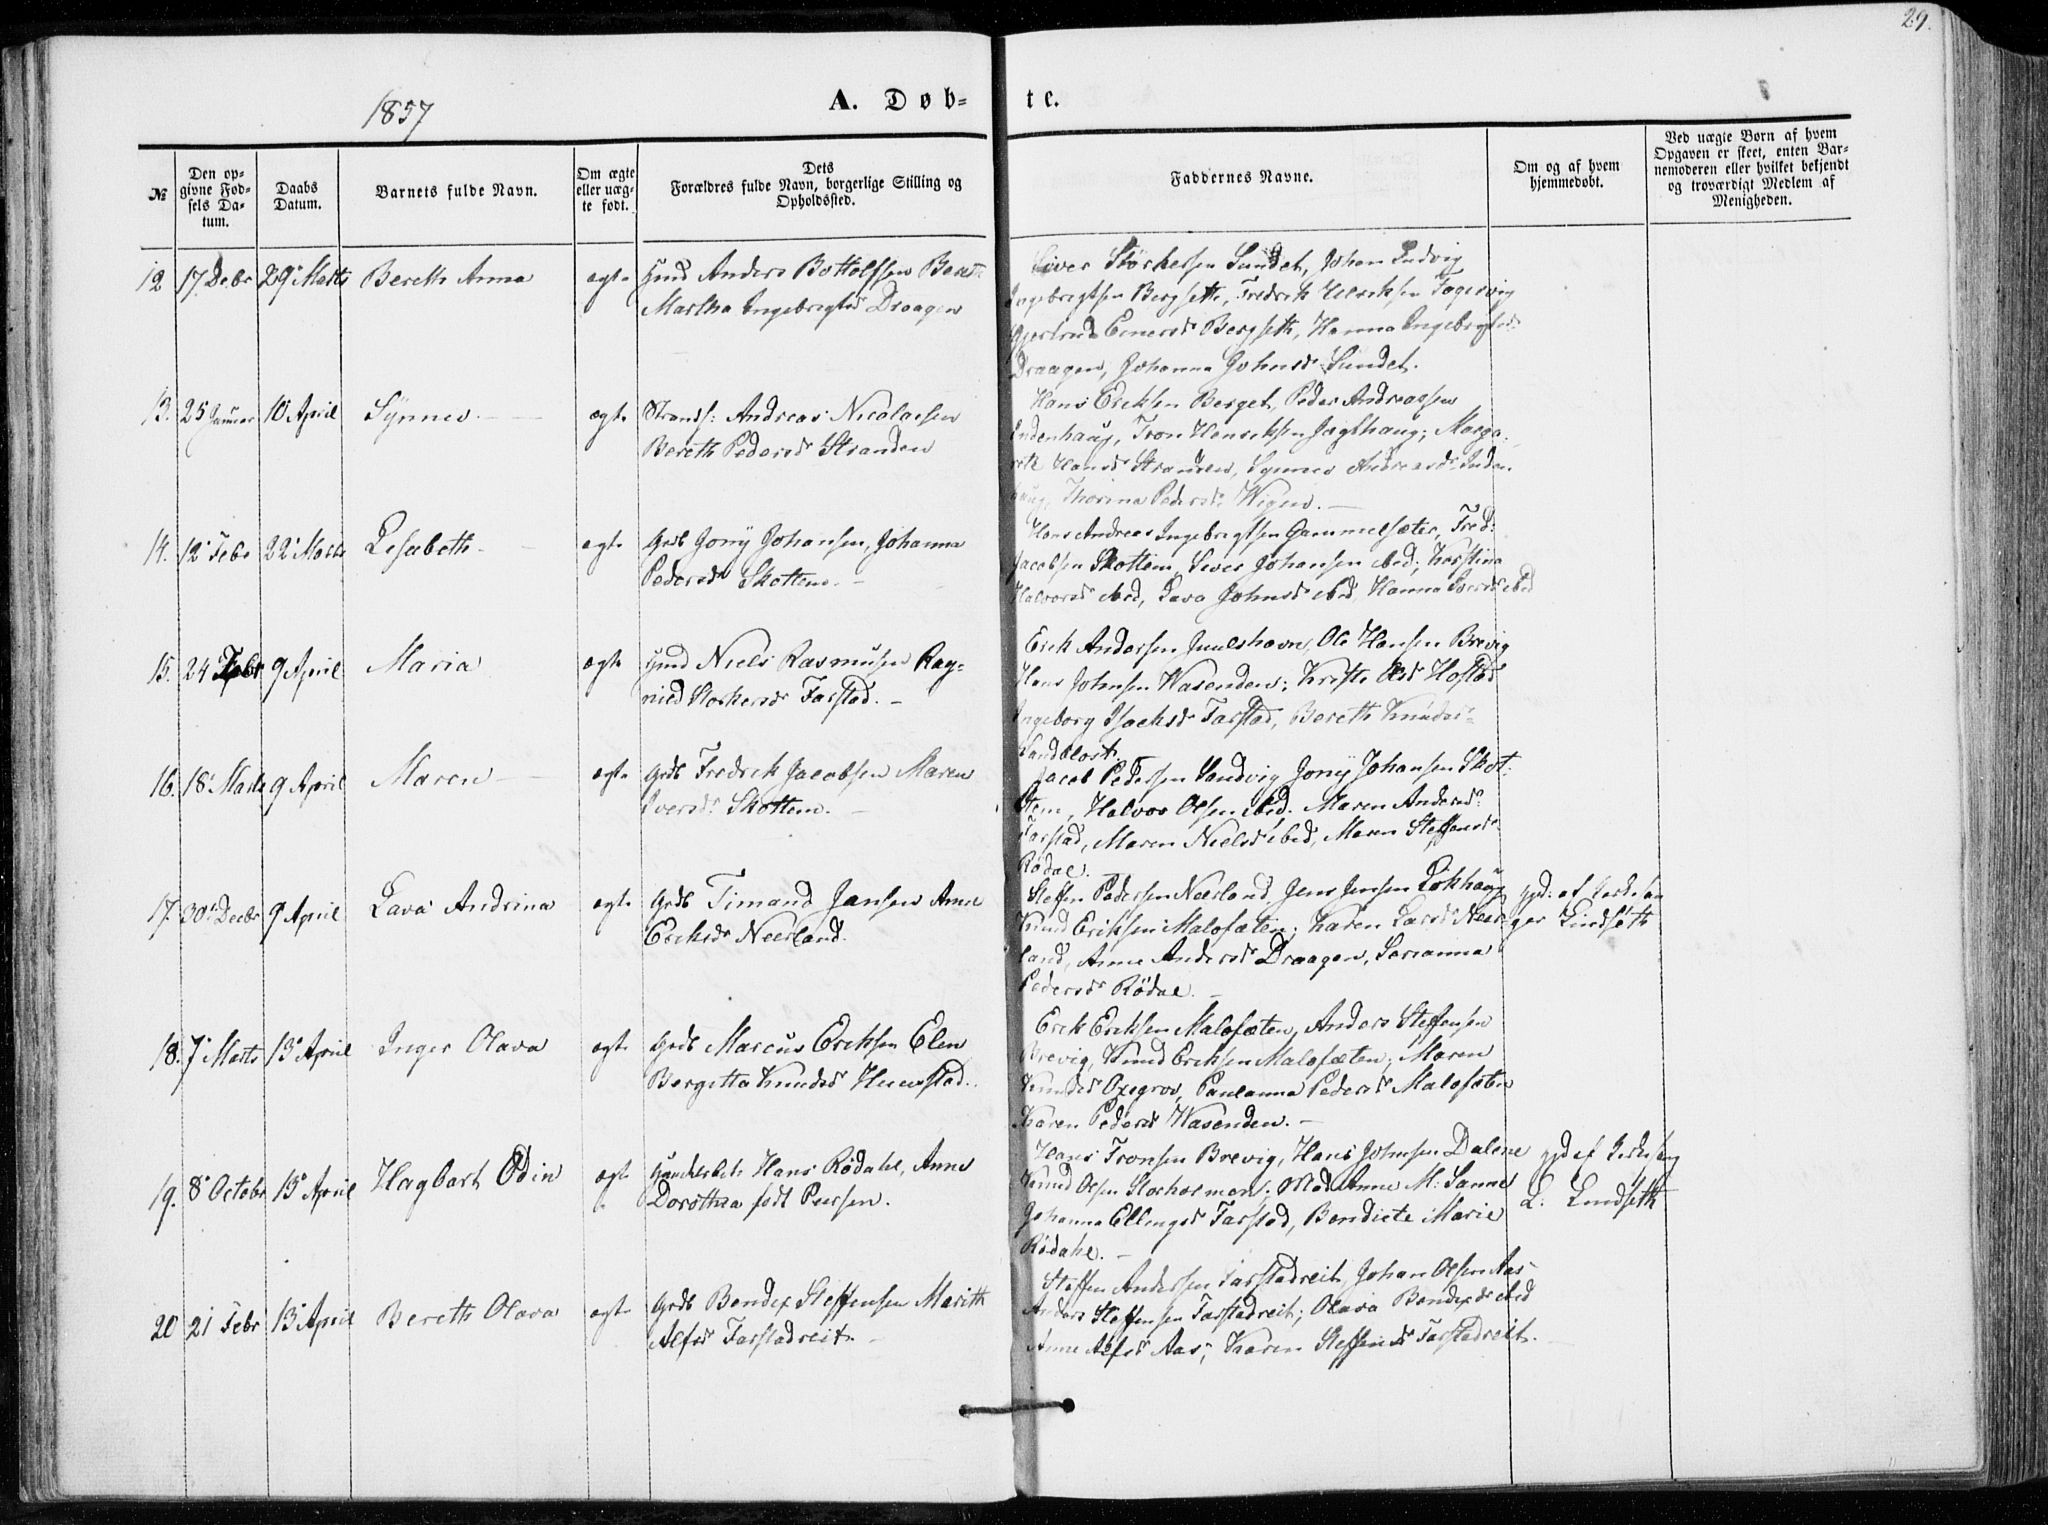 29.
1857
A. Døb-te.
№
Den opgivne Fødsels Datum.
Daabs Datum.
Barnets fulde Navn.
Om ægte eller uægte født.
Dets Forældres fulde Navn, borgerlige Stilling og Opholdssted.
Faddernes Navne.
Om og af hvem hjemmedøbt.
Ved uægte Børn af hvem Opgaven er skeet, enten Barnemoderen eller hvilket bekjendt og troværdigt Medlem af Menigheden.
12 17 Debr 29 Marts Bereth Anna ægte Hmd Anders Bottolfsen Bereth
Martha Ingebrigtsd Draagen
Siver Størkersen Sundet, Johan Ludvig
Ingebrigtsen Bergseth, Fredrik Ulriksen Fagervig
Gjertrud Einersd Bergseth, Hanna Ingebrigtsd
Draagen, Johanna Johnsd Sundet.
13. 25 Januar 10 April Synnev. ægte Strands: Andreas Nicolaisen
Bereth Pedersd Stranden
Hans Eriksen Berget, Peder Andreassen
Indenhaug, Tron Henriksen Jægthaug; Marga-
reth Hansd Stranden, Synnev Andreasd Inden-
haug, Thorina Pedersd Wigen.
14. 12 Febr 22 Marts Lisabeth ægte Grdb Jony Johansen, Johanna
Pedersd Skottem.
Hans Andreas Ingebrigtsen Gammelsæter, Fred:
Jacobsen Skottem, Siver Johansen ibid; Kirstina
Halvorsd ibid, Lava Johnsd ibid, Hanna Iversd ibid
15. 24 Febr 9 April Maria ægte Hmd Niels Rasmusen Rag-
nild Storkersd Farstad.
Erik Andersen Juulshavn, Ole Hansen Brevig
Hans Johnsen Wasenden; Kirsti Olsd Hostad
Ingeborg Isachsd Farstad, Bereth Knudsd
Sandblost.
16. 18 Marts 9 April Maren ægte Grdb Fredrik Jacobsen Maren
Iversd Skottem.
Jacob Pedersen Sandvig Jony Johansen Skot-
tem, Halvor Olsen ibid. Maren Andersd
Farstad, Maren Nielsd ibid, Maren Steffensd
Rødal.
17. 30 Decbr 9 April Lava Andrina ægte Grdb Timand Jansen Anne
Eriksd Neerland.
Steffen Pedersen Neerland, Jens Jensen Løkhaug
Knud Eriksen Malosæten; Karen Larsd Neer-
land, Anne Andersd Draagen, Sarianna
Pedersd Rødal.
hjd: af Kirkesan
ger Lindseth
18. 7 Marts 13 April Inger Olava ægte Grdb Marcus Eriksen Elen
Bergitta Knudsd Huusstad.
Erik Eriksen Malosæten, Anders Steffensen
Brevig, Knud Eriksen Malosæten; Maren
Knudsd Oxegrov, Paulanna Pedersd Malosæten
Karen Pedersd Wasenden.
19. 8 Octobr 13 April Hagbart Odin ægte Handelsbetj. Hans Rødahl, Anne
Dorothea født Bursen.
Hans Tronsen Brevig, Hans Johnsen Dalene
Knud Olsen Storholmen; Mad Anne M: Sanne
Johanna Ellingsd Farstad, Bendicte Marie
Rødahl.
hjd af Kirkesang
L. Lindseth
20 21 Febr 13 April Bereth Olava ægte Grdb Bendix Steffensen Marith
Alfsd Farstadreit
Steffen Andersen Farstadreit, Johan Olsen Aas
Anders Steffensen Farstadreit; Olava Bendixsd ibid
Anne Alfsd Aas; Karen Steffensd Farstadreit.